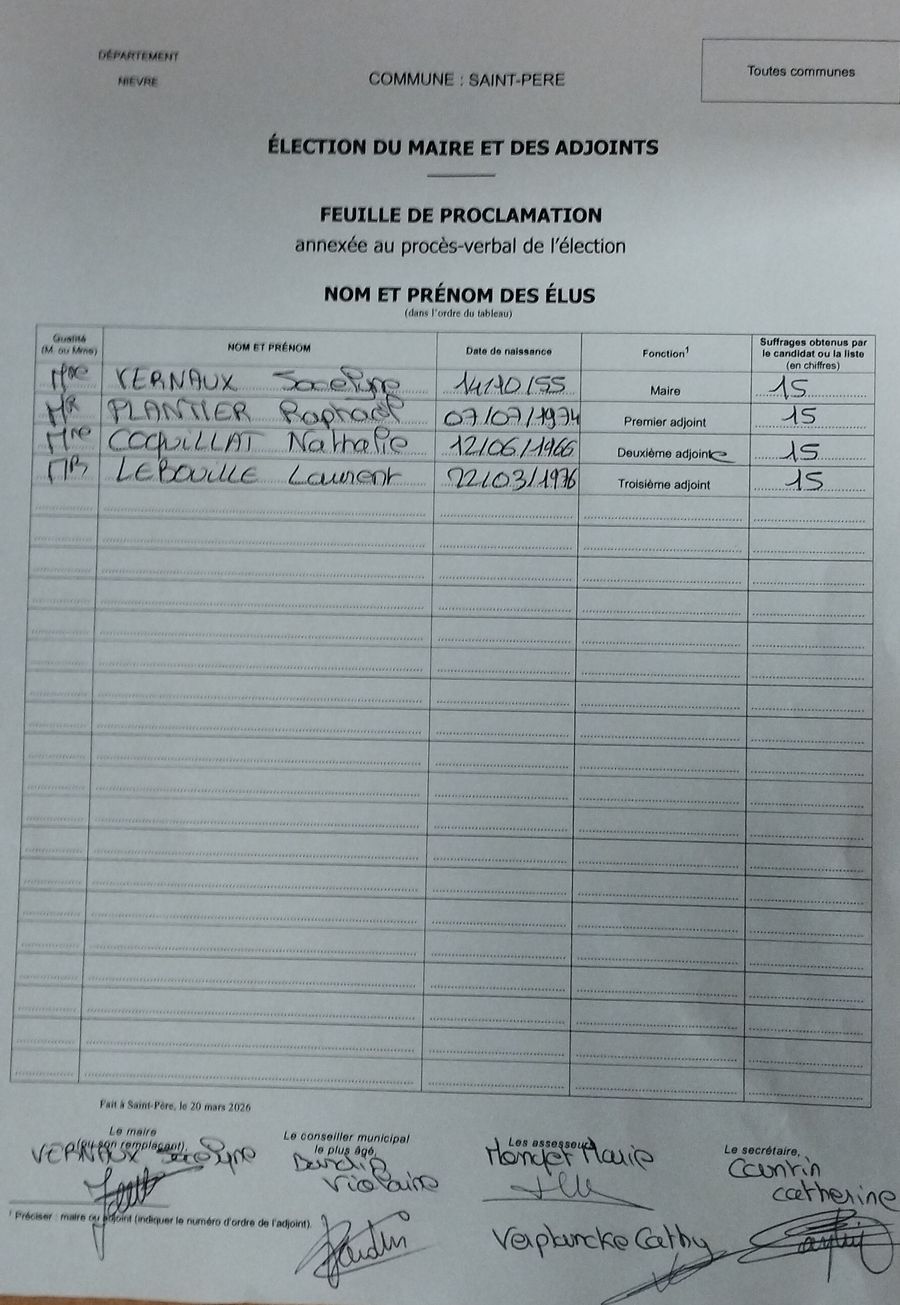 DÉPARTEMENT
NIEVRE
COMMUNE : SAINT-PERE
Toutes communes
ÉLECTION DU MAIRE ET DES ADJOINTS
FEUILLE DE PROCLAMATION
annexée au procès-verbal de l'élection
NOM ET PRÉNOM DES ÉLUS
(dans l'ordre du tableau)
Qualité (M. ou Mme) NOM ET PRÉNOM Date de naissance Fonction¹ Suffrages obtenus par le candidat ou la liste (en chiffres)
Mme VERNAUX Jocelyne 14/10/55 Maire 15
MR PLANTIER Raphaël 07/07/1974 Premier adjoint 15
Mme COQUILLAT Nathalie 12/06/1966 Deuxième adjointe 15
MR LEBOULLE Laurent 22/03/1976 Troisième adjoint 15
Fait à Saint-Père, le 20 mars 2026
Le maire
(ou son remplaçant),
VERNAUX Jocelyne
Le conseiller municipal
le plus âgé,
Violaine
Les assesseurs,
Marie
Verplancke Cathy
Le secrétaire,
Catherine
¹ Préciser : maire ou adjoint (indiquer le numéro d'ordre de l'adjoint).